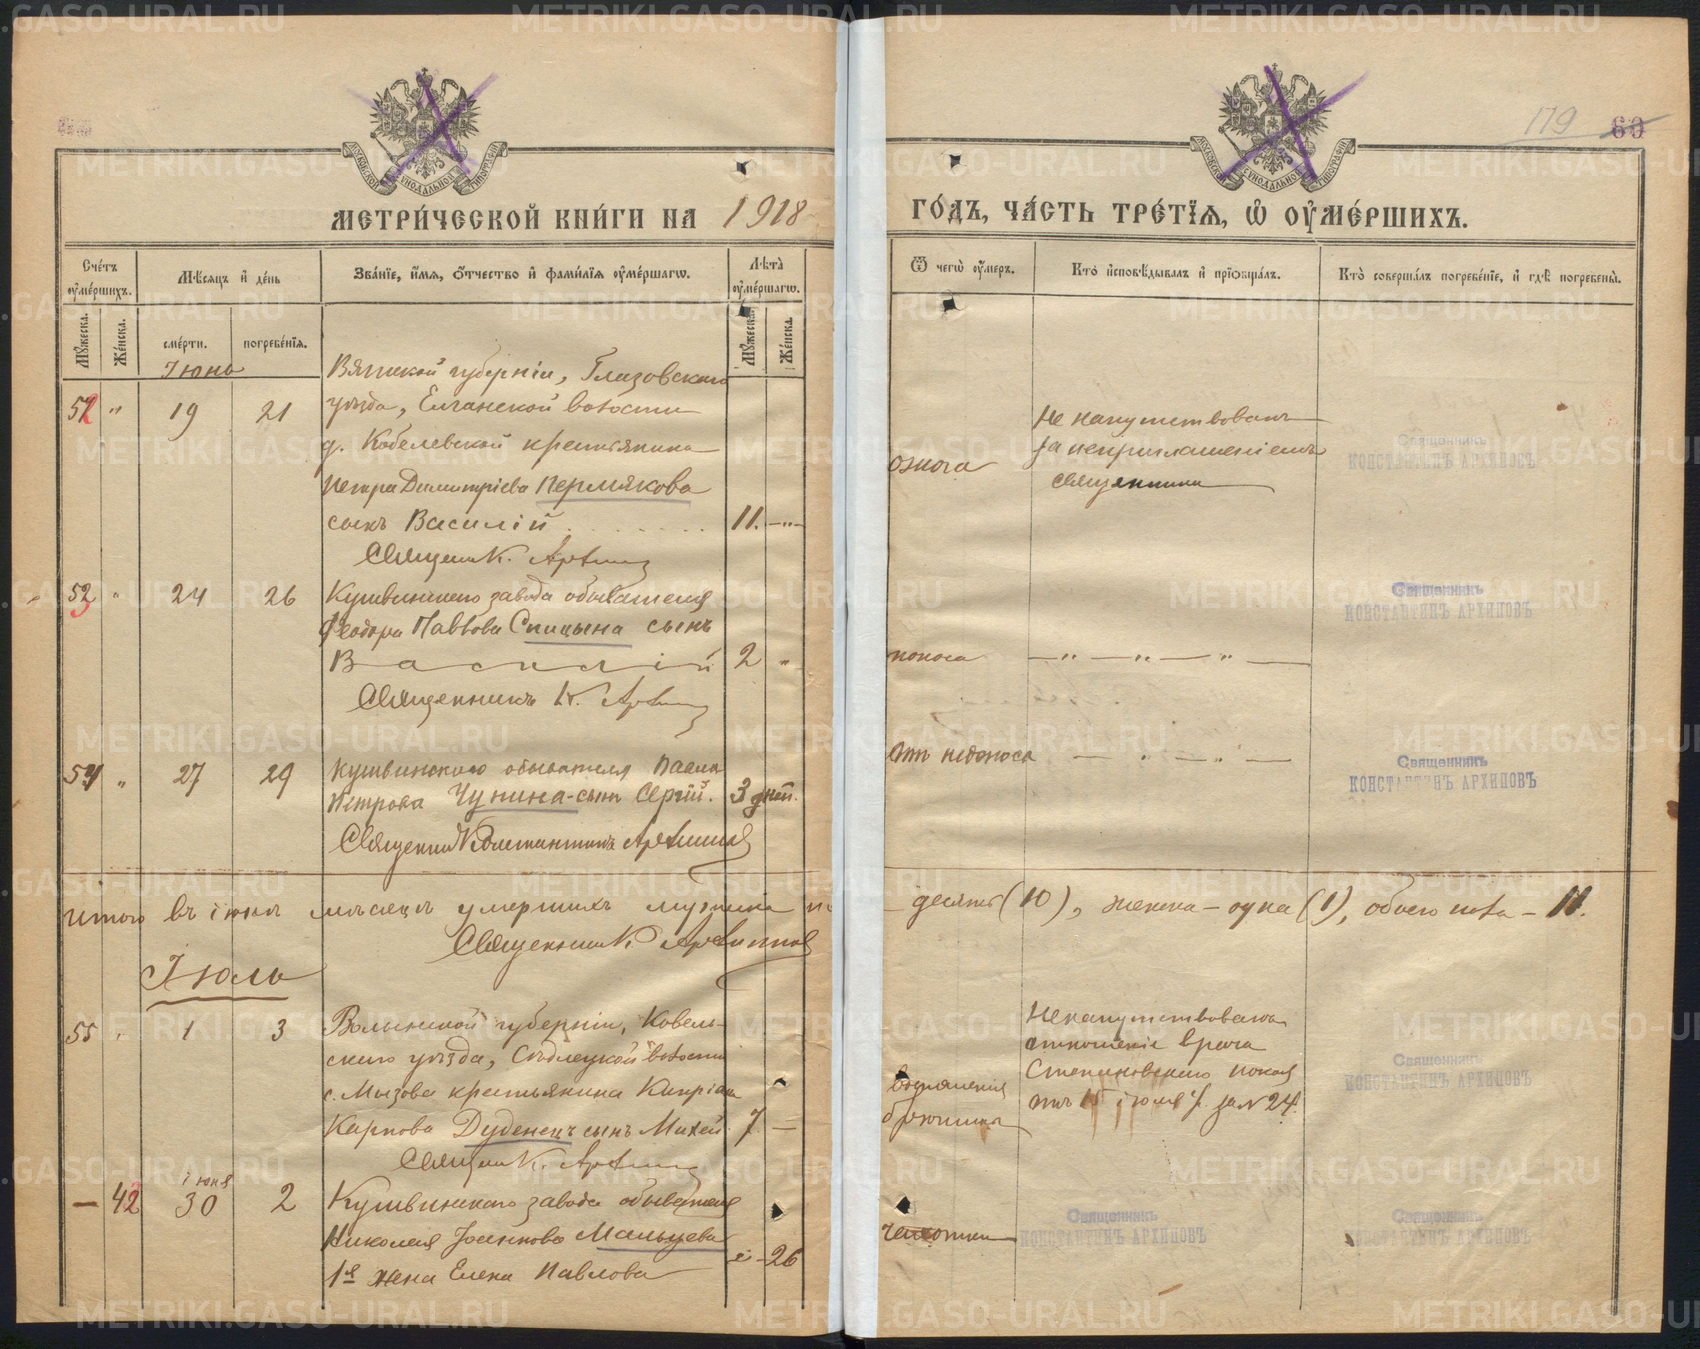 179 60
МЕТРИ́ЧЕСКОЙ КНИ́ГИ НА 1918
ГО́ДЪ, ЧА́СТЬ ТРЕ́ТЇѦ, Ѡ҆ ОУ҆МЕ́РШИХЪ.
Сче́тъ оу҆ме́ршихъ.
Мѣ́сяцъ и҆ де́нь
Зва́нїе, и҆́мя, ѻ҆́тчество и҆ фами́лїя оу҆ме́ршагѡ.
Лѣ́та оу҆ме́ршагѡ.
Ѿ чегѡ̀ оу҆́меръ.
Кто̀ и҆сповѣ́дывалъ и҆ прїѻбща́лъ.
Кто̀ соверша́лъ погребе́нїе, и҆ гдѣ̀ погребены̀.
Му́жеска.
Же́нска.
сме́рти.
погребе́нїя.
Му́жеска.
Же́нска.
Іюнь
Вятской губерніи, Глазовскаго
52 " 19 21 уѣзда, Елганской волости
д. Кобелевской крестьянина
Петра Димитріева Пермякова
сынъ Василій 11. — " —
Священ. К. Архипов
ожога
Не напутствованъ
за неприглашеніемъ
священника
Священникъ
КОНСТАНТИНЪ АРХИПОВЪ
53 " 24 26 Кушвинскаго завода обывателя
Феодора Павлова Спицына сынъ
Василій 2 "
Священникъ К. Архипов
поноса — " — " — " —
Священникъ
КОНСТАНТИНЪ АРХИПОВЪ
54 " 27 29 Кушвинскаго обывателя Павла
Петрова Чупина - сынъ Сергій. 3 дней.
Священник Константинъ Архипов
Отъ недоноса — " — " —
Священникъ
КОНСТАНТИНЪ АРХИПОВЪ
Итого въ іюнѣ мѣсяцѣ умершихъ мужска по
— десять (10), женска — одна (1), обоего пола — 11.
Священник К. Архипов
Іюль
55 " 1 3 Волынской губерніи, Ковель-
скаго уѣзда, Сѣдлецкой волости
с. Мызова крестьянина Кипріана
Карпова Дуденецъ сынъ Михей. 7. —
Священ. К. Архипов
воспаленія
брюшины
Не напутствованъ
отношеніе врача
Степановскаго покоя
отъ 15 іюля с. г. за № 24.
Священникъ
КОНСТАНТИНЪ АРХИПОВЪ
— 42 іюня 30 2 Кушвинскаго завода обывателя
Николая Іоаннова Мальцева
1я жена Елена Павлова " — 26
чахотки
Священникъ
КОНСТАНТИНЪ АРХИПОВЪ
Священникъ
КОНСТАНТИНЪ АРХИПОВЪ
METRIKI.GASO-URAL.RU